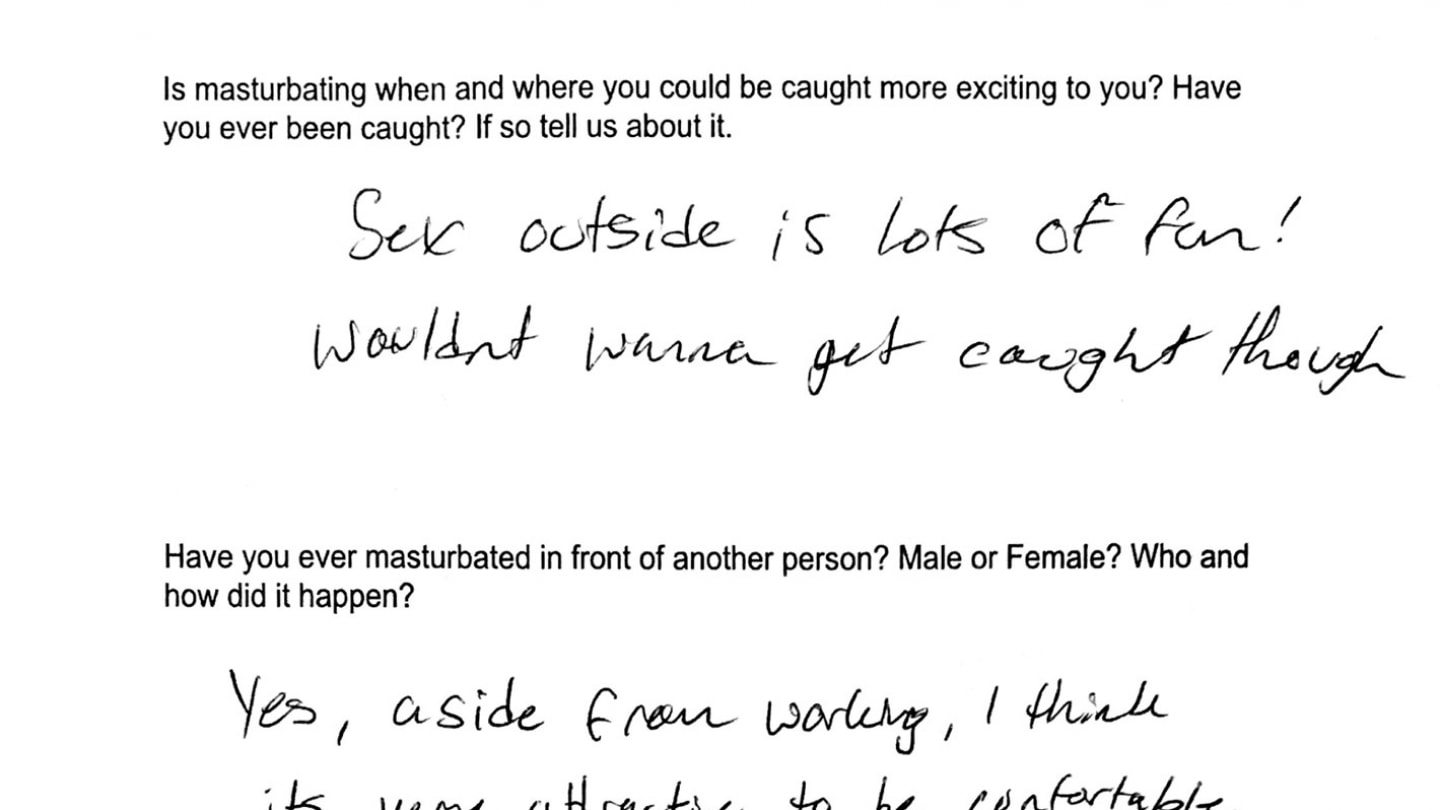 Is masturbating when and where you could be caught more exciting to you? Have
you ever been caught? If so tell us about it.
Sex outside is lots of fun!
Wouldnt wanna get caught though
Have you ever masturbated in front of another person? Male or Female? Who and
how did it happen?
Yes, aside from working, I think
its very attractive to be confortable